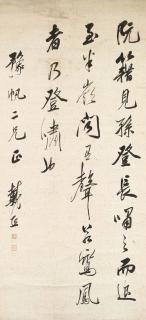 阮籍見孫登長嘯之而退
至半嶺聞其聲若鸞鳳
者乃登嘯也
豫帆二兄正 戴